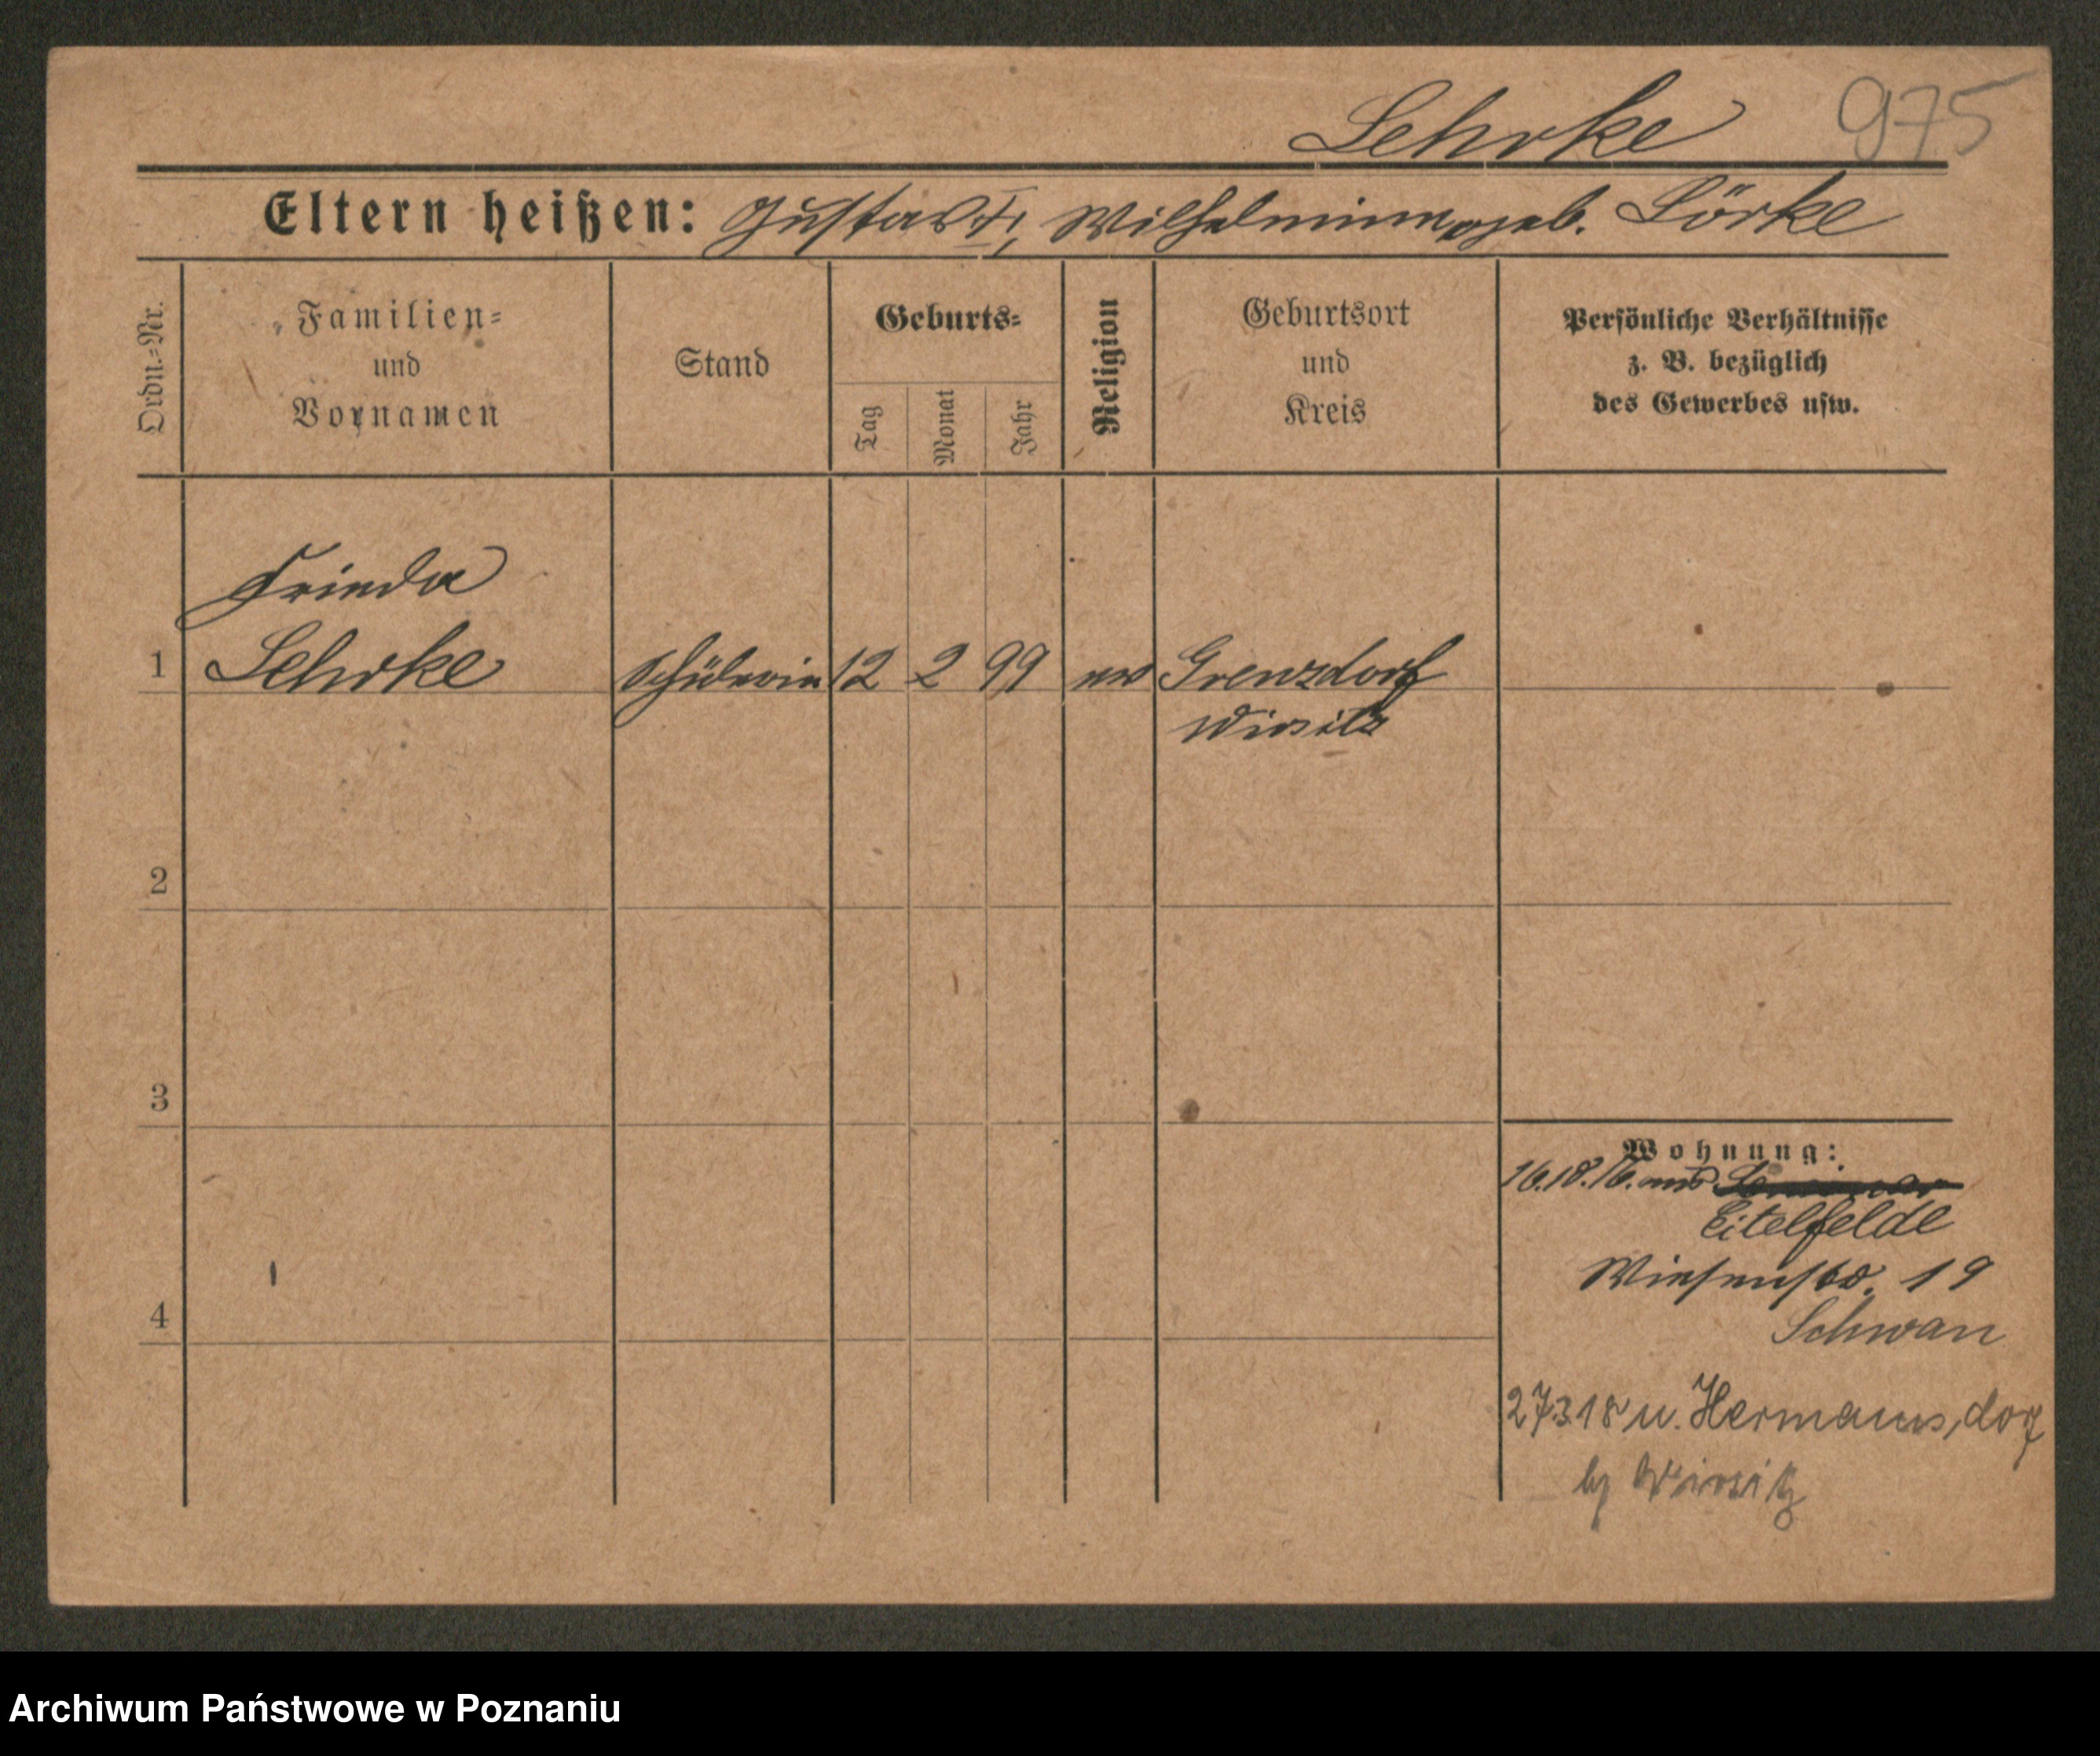 Lehrke 975
Eltern heißen: Gustav †, Wilhelmine geb. Lörke
Ordn.=Nr.
Familien=
und
Vornamen
Stand
Geburts=
Tag
Monat
Jahr
Religion
Geburtsort
und
Kreis
Persönliche Verhältnisse
z. B. bezüglich
des Gewerbes usw.
Frieda
1 Lehrke Schülerin 12 2 99 ev Grenzdorf
Wirsitz
2
3
Wohnung:
16.18.16. aus
Eitelfelde
Wiesenstr. 19
Schwan
4
27.3.18 n. Hermannsdorf
b/ Wirsitz
Archiwum Państwowe w Poznaniu